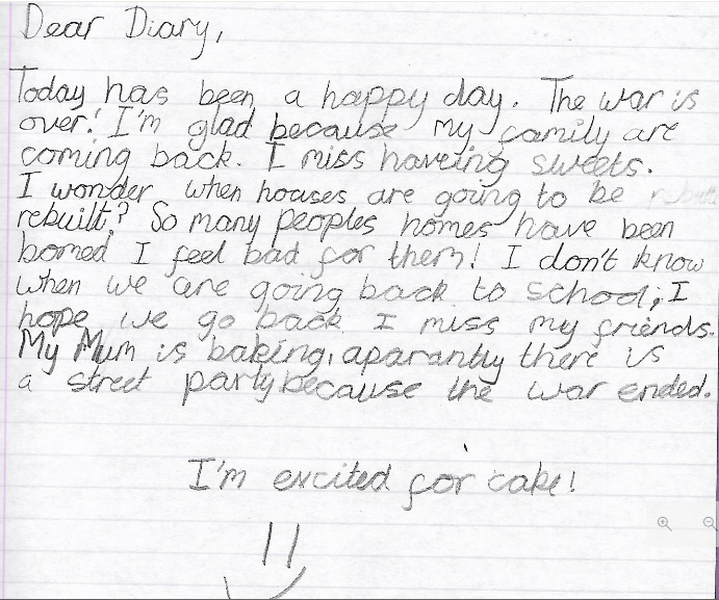 Dear Diary,
Today has been a happy day. The war is
over! I'm glad because my family are
coming back. I miss haveing sweets.
I wonder when houses are going to be
rebuilt? So many peoples homes have been
bomed I feel bad for them! I don't know
when we are going back to school, I
hope we go back I miss my friends.
My Mum is baking, aparantly there is
a street party because the war ended.
I'm excited for cake!